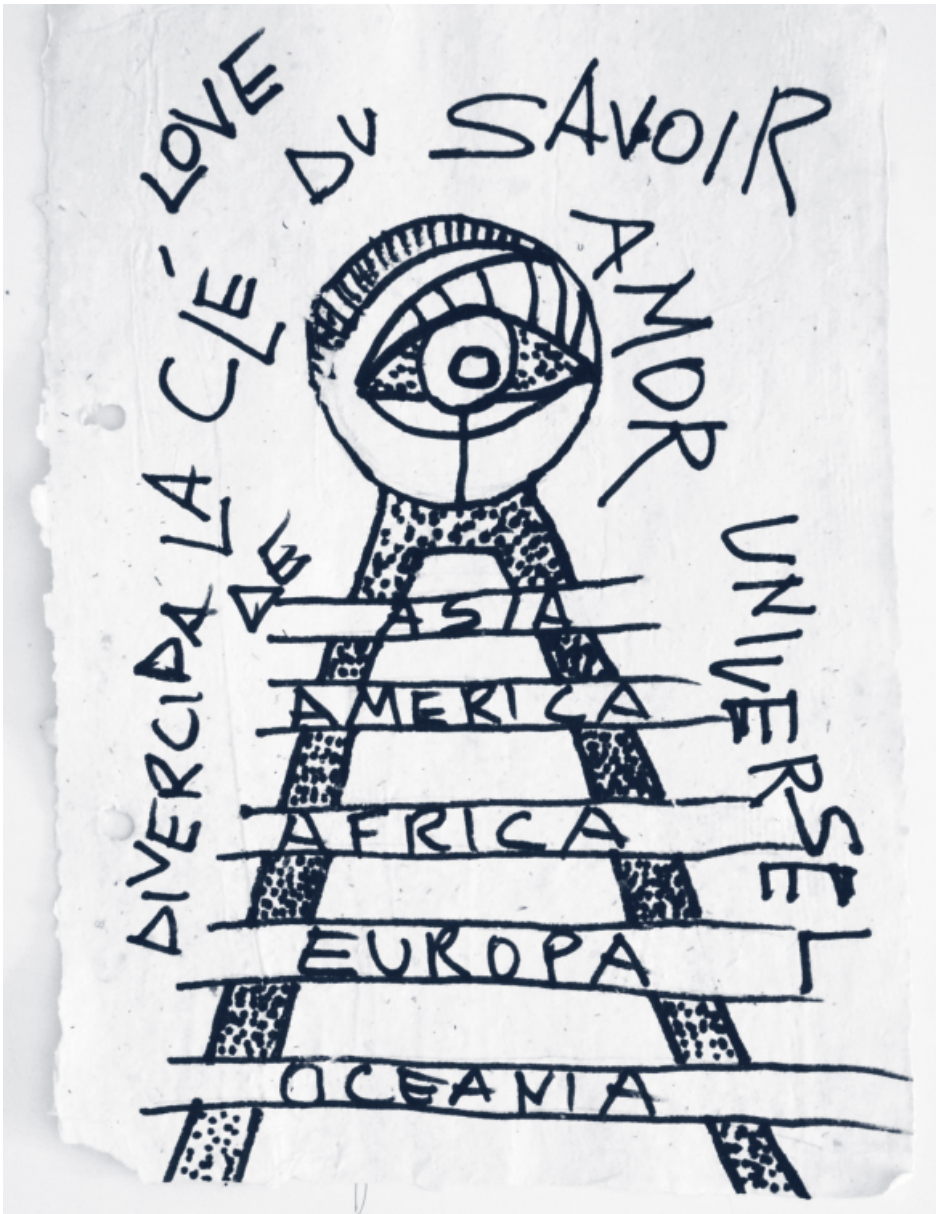 DIVERCIDA
DE
LA CLÉ
LOVE
DU SAVOIR
AMOR
UNIVERSEL
ASIA
AMERICA
AFRICA
EUROPA
OCEANIA